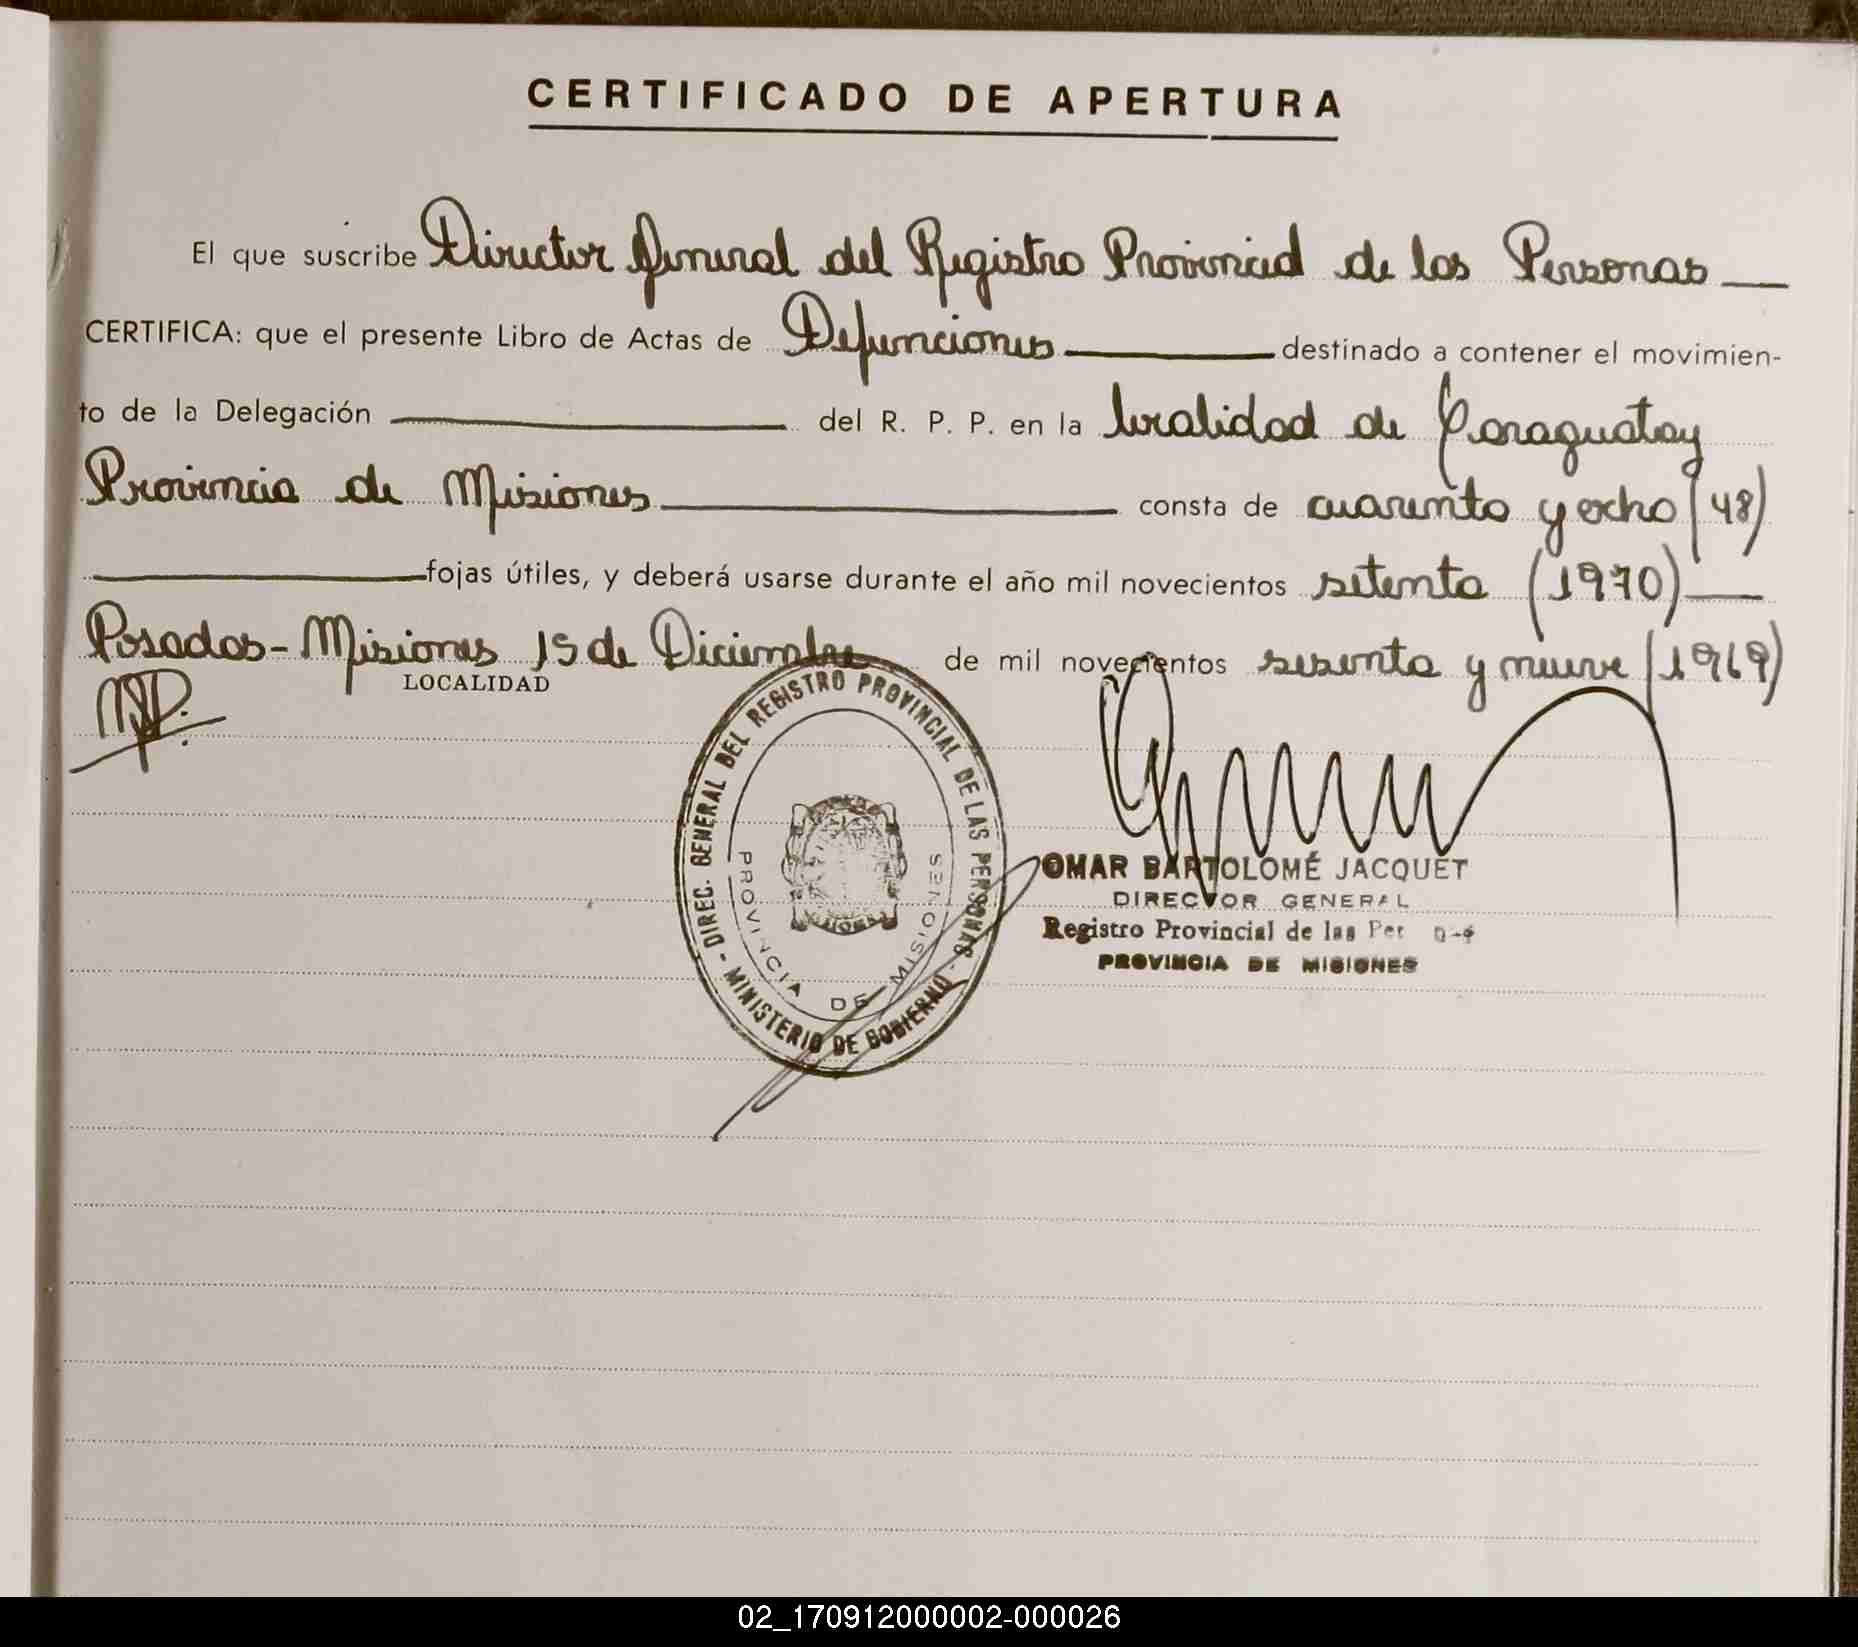 CERTIFICADO DE APERTURA
El que suscribe Director General del Registro Provincial de las Personas
CERTIFICA: que el presente Libro de Actas de Defunciones destinado a contener el movimien-
to de la Delegación del R. P. P. en la localidad de Caraguatay
Provincia de Misiones consta de cuarenta y ocho (48)
fojas útiles, y deberá usarse durante el año mil novecientos setenta (1970)
Posadas - Misiones 15 de Diciembre de mil novecientos sesenta y nueve (1969)
LOCALIDAD
DIREC. GENERAL DEL REGISTRO PROVINCIAL DE LAS PERSONAS
- MINISTERIO DE GOBIERNO -
PROVINCIA DE MISIONES
OMAR BARTOLOMÉ JACQUET
DIRECTOR GENERAL
Registro Provincial de las Per
PROVINCIA DE MISIONES
02_170912000002-000026